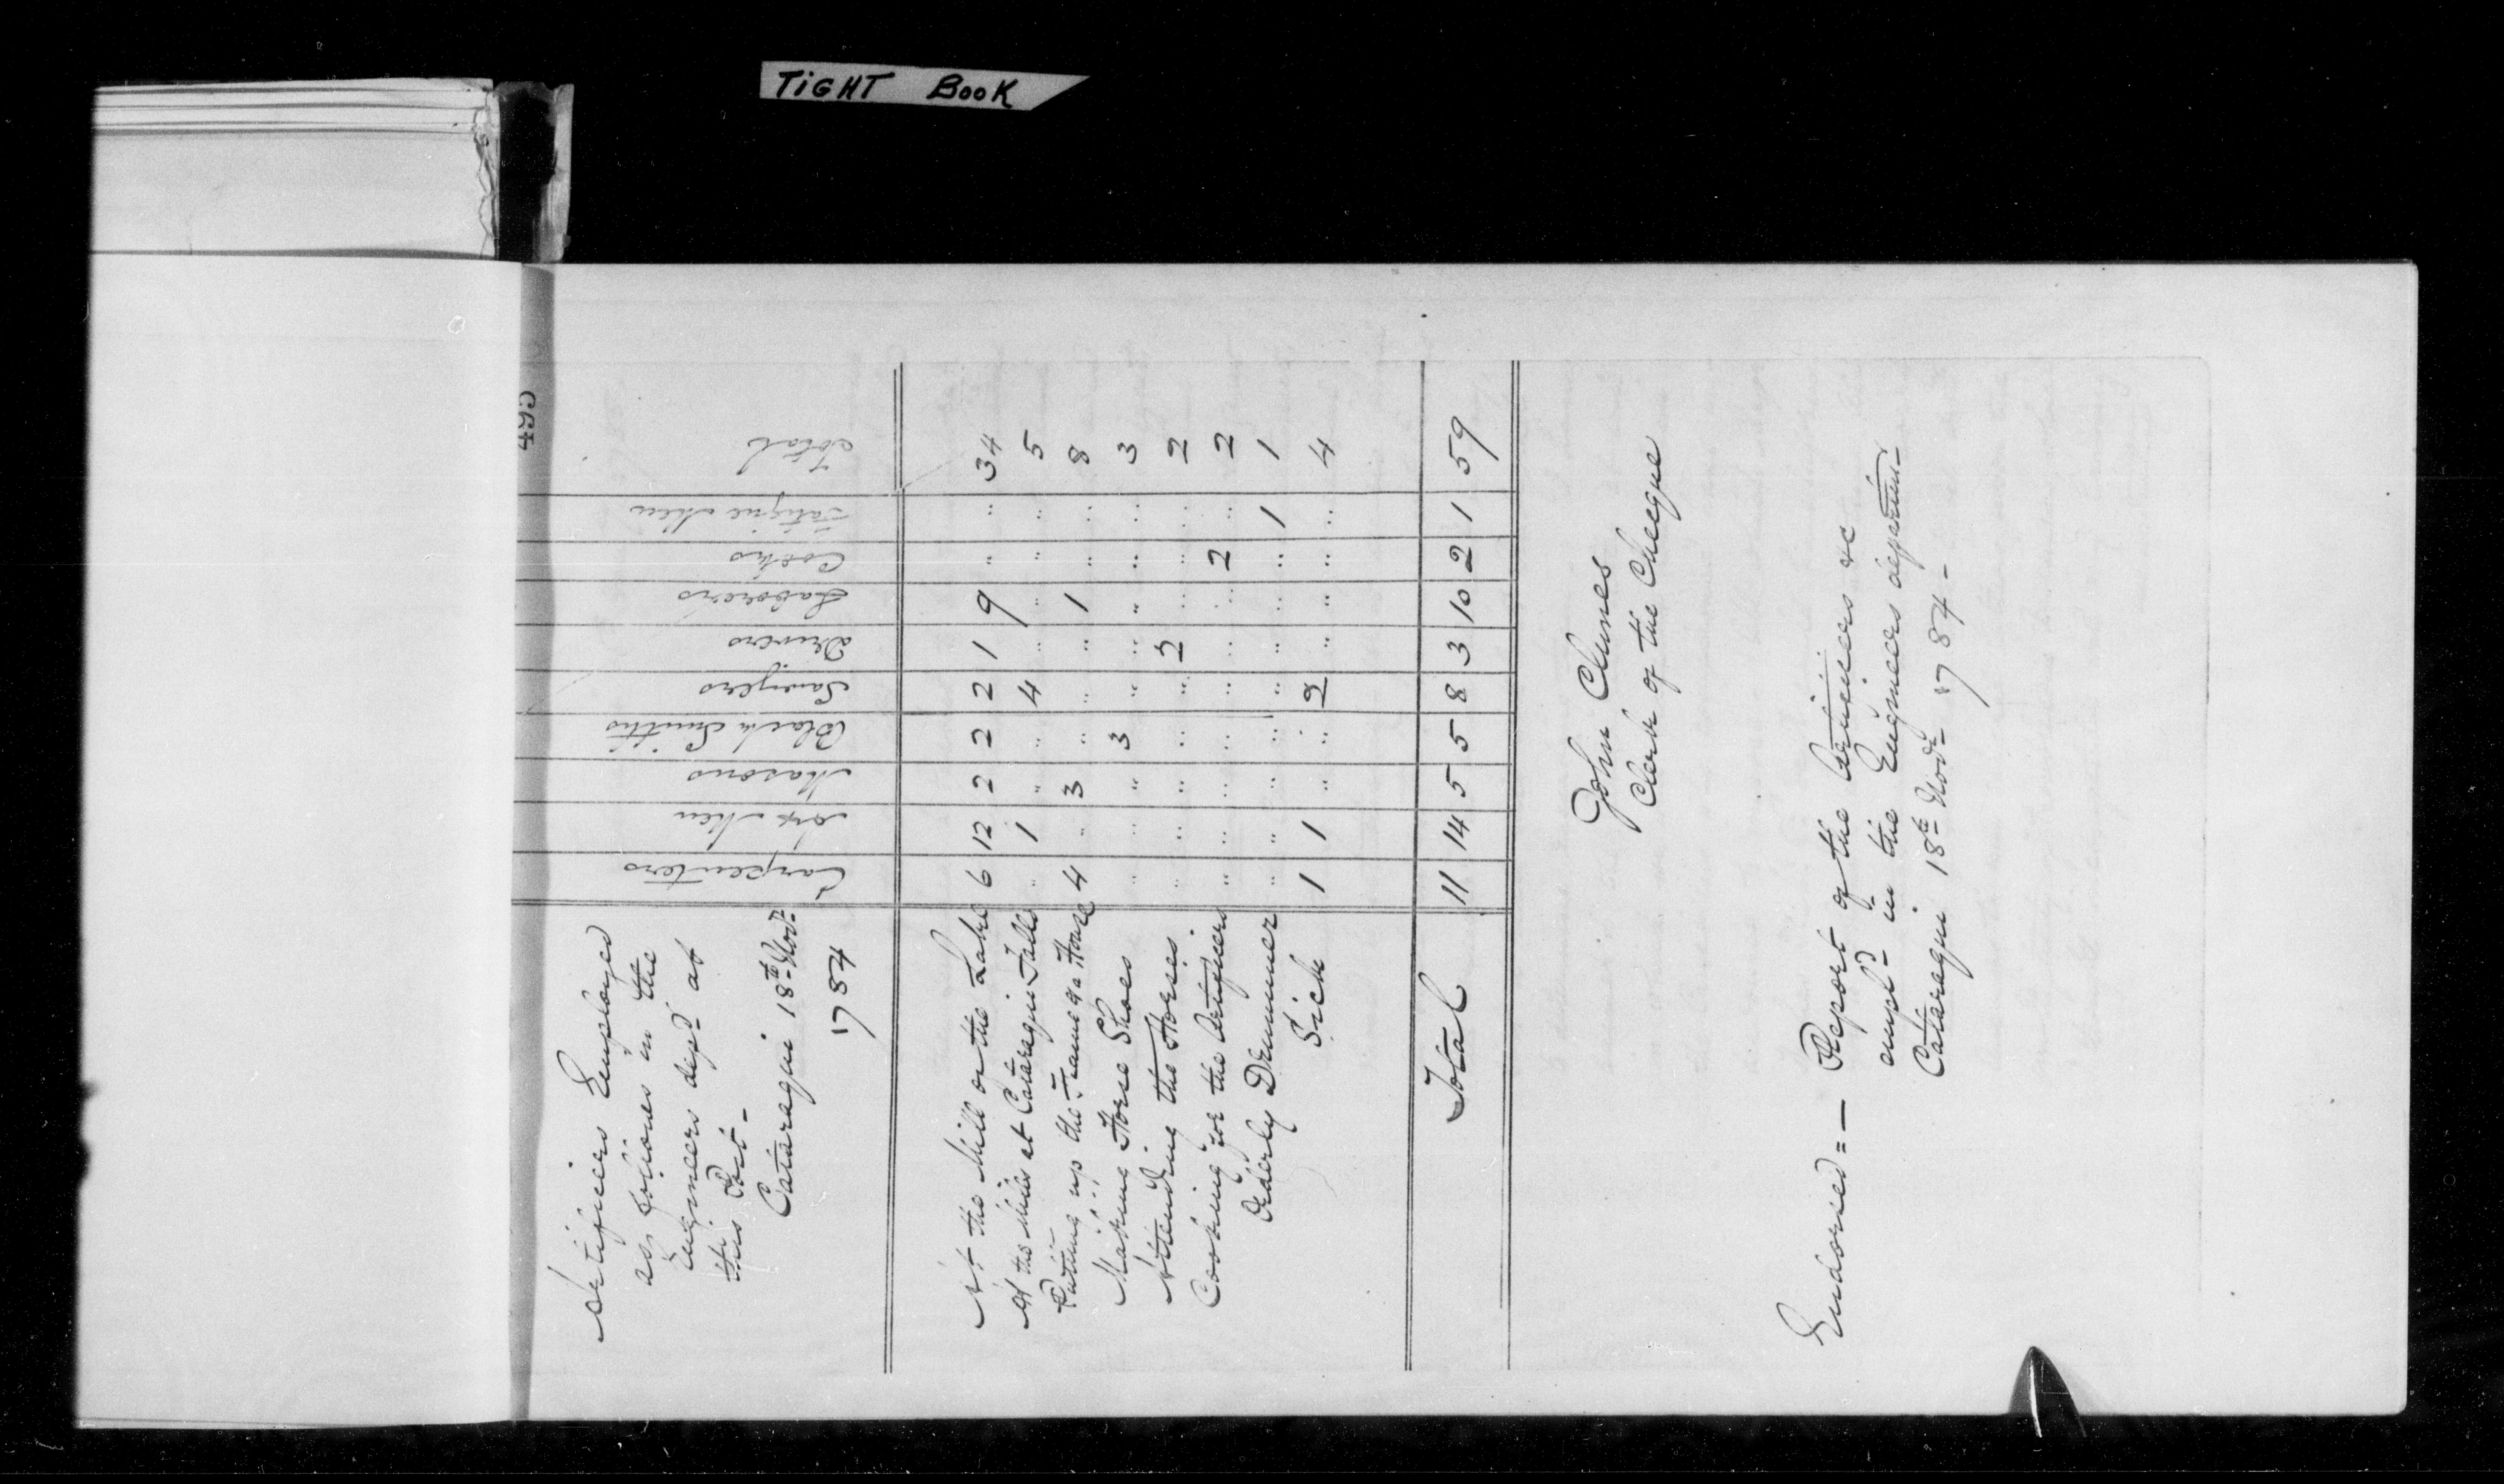 TiGHT BooK
Artificers Employed
as follows in the
Engineers dept at
this Post -
Cataraqui 18th Novr
1784
Carpenters
Axe Men
Masons
Black Smiths
Sawyers
Drivers
Laborers
Cooks
Fatigue Men
Total
At the Mill or the Lake 6 12 2 2 2 1 9 " " 34
At the Mills at Cataraqui Falls " 1 " " 4 " " " " 5
Putting up the Frame of a House 4 " 3 " " " 1 " " 8
Making Horse Shoes " " " 3 " " " " " 3
Attending the Horses " " " " " 2 " " " 2
Cooking for the Artificers " " " " " " " 2 " 2
Orderly Drummer " " " " " " " " 1 1
Sick 1 1 " " 2 " " " " 4
Total 11 14 5 5 8 3 10 2 1 59
John Clunes
Clerk of the Cheque
Endorsed = — Report of the Artificers &c
empld in the Engineers departm-
Cataraqui 18th Novr 1784 -